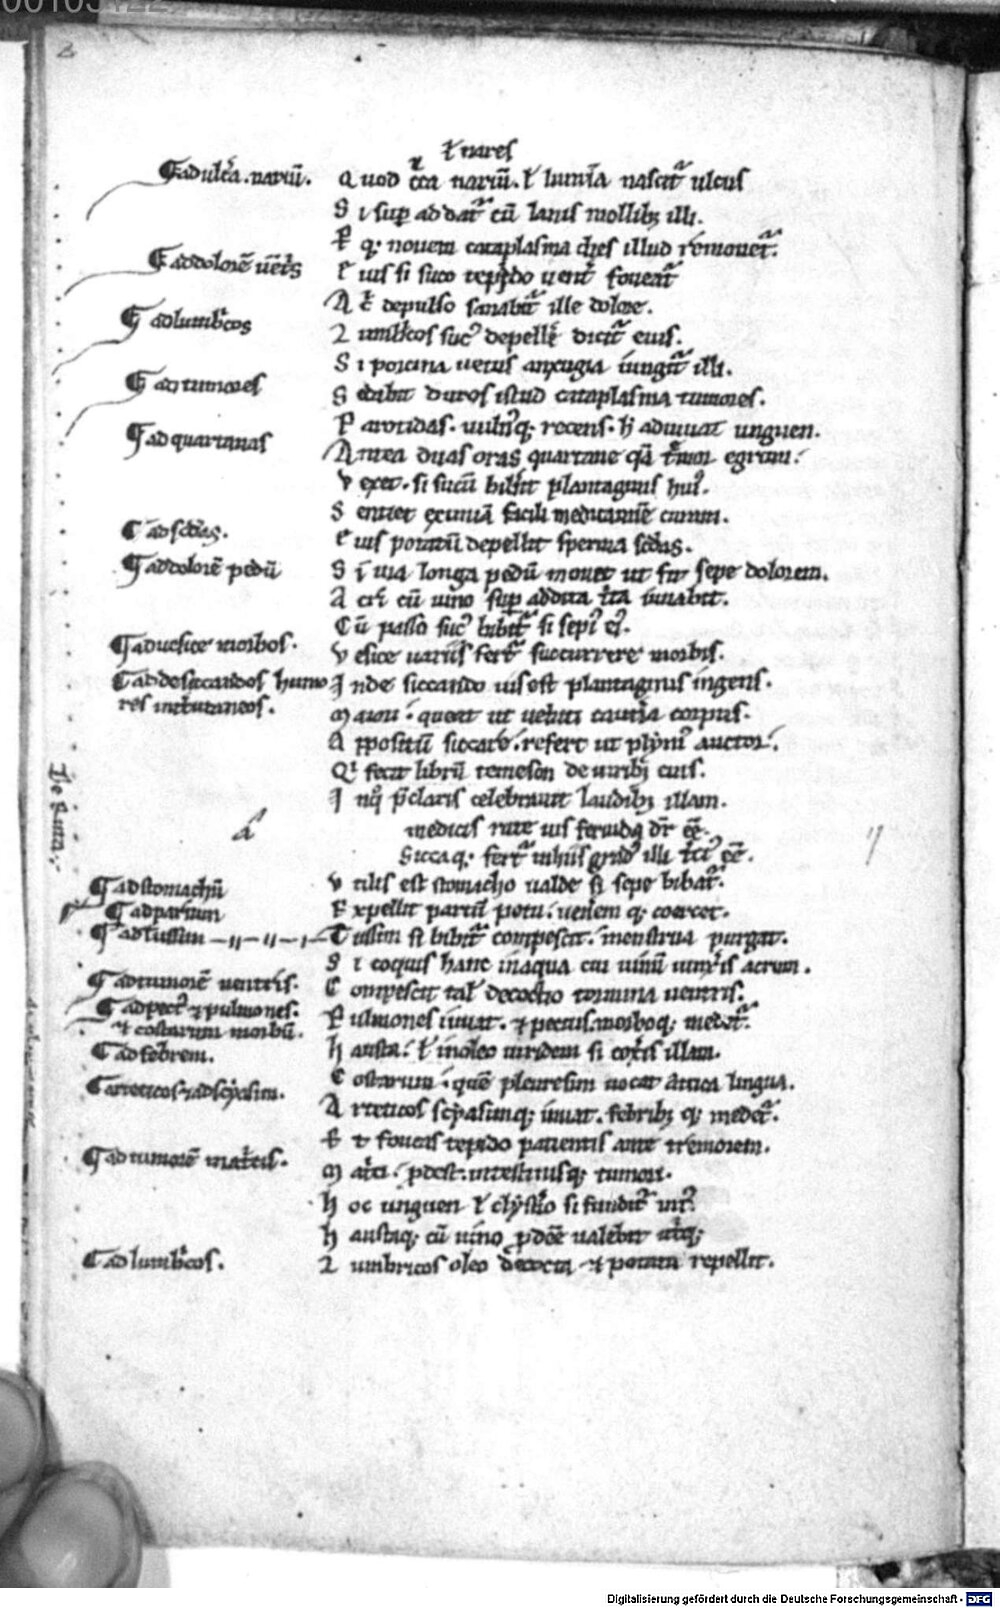 ł nares
Ad ulc̄a nariū. Quod c̄ca nariū. ł lumīa nascit̄ ulcus
Si sup addat̄ cū lanis mollibꝫ illi.
qꝫ novem cataplasma dies illud removet̄.
Ad dolorē vēt̄s Eius si suco tepido vent̄ foveat̄
depulso sanabit̄ ille dolore.
Ad lumb̄cos Lumb̄cos sucꝰ depellē dicit̄ eius.
Si porcina vetus anxugia iungit̄ illi.
Ad tumores Sedabit duros istud cataplasma tumores.
Parotidas. vulnꝰqꝫ recens. h̄ adiuvat unguen.
Ad quartanas Antea duas oras quartane q̄ tremor egrum.
Vexet. si sucū bib̄it plantaginis huiꝰ.
Sentiet eximiā facili medicamīe curam.
Ad sc̄das. Eius potatū depellit sperma sc̄das.
Ad dolorē pedū Si via longa pedū movet ut fit sepe dolorem.
A cū vino sup addita t̄ta iuvabit.
Cū passo sucꝰ bibit̄ si sepiꝰ eiꝰ.
Ad vesice morbos. Vesice variis fert̄ succurrere morbis.
Ad desiccandos humo Inde siccando vis est plantaginis ingens.
res int̄cutaneos. Maior. queat ut corpus.
Appositū siccare. refert ut plyniꝰ auctor.
Qi fecit librū temeson de viribꝫ eius.
In qͦ p̄claris celebravit laudibꝫ illam.
De Ruta.
medicis rute vis fervida dr̄ eē.
Siccaqꝫ fert̄ in huiꝰ gradꝰ illi t̄ciꝰ eē.
Ad stomachū Utilis est stomacho valde si sepe bibat̄.
Ad partum Expellit partū potu. venerem qꝫ coercet.
Ad tussim Tussim si bibit̄ compescit. menstrua purgat.
Si coquis hanc in aqua cui vinū iunx̄is acrum.
Ad tumorē ventris. Compescit tal̄ decoctio tormina ventris.
Ad pectꝰ ⁊ pulmones. Pulmones iuvat. ⁊ pectus. morboqꝫ medet̄.
⁊ costarum morbū.
Ad febrem. Hausta. ł in oleo viridem si cox̄is illam.
Costarum. quē pleuresim vocat attica lingua.
Arteticos ⁊ ad scyasim. Arteticos scyasimqꝫ iuvat. febribꝫ qꝫ medet̄.
Et foveis tepido patientis ante tremorem.
Ad tumorē mat̄cis. Mat̄ci. p̄dest. intestinisqꝫ tumori.
Hoc unguen ł clyst̄io si fundit̄ int̄.
Haustaqꝫ cū vino
Ad lumb̄cos. Lumbricos oleo decocta ⁊ potata repellit.
Digitalisierung gefördert durch die Deutsche Forschungsgemeinschaft - DFG